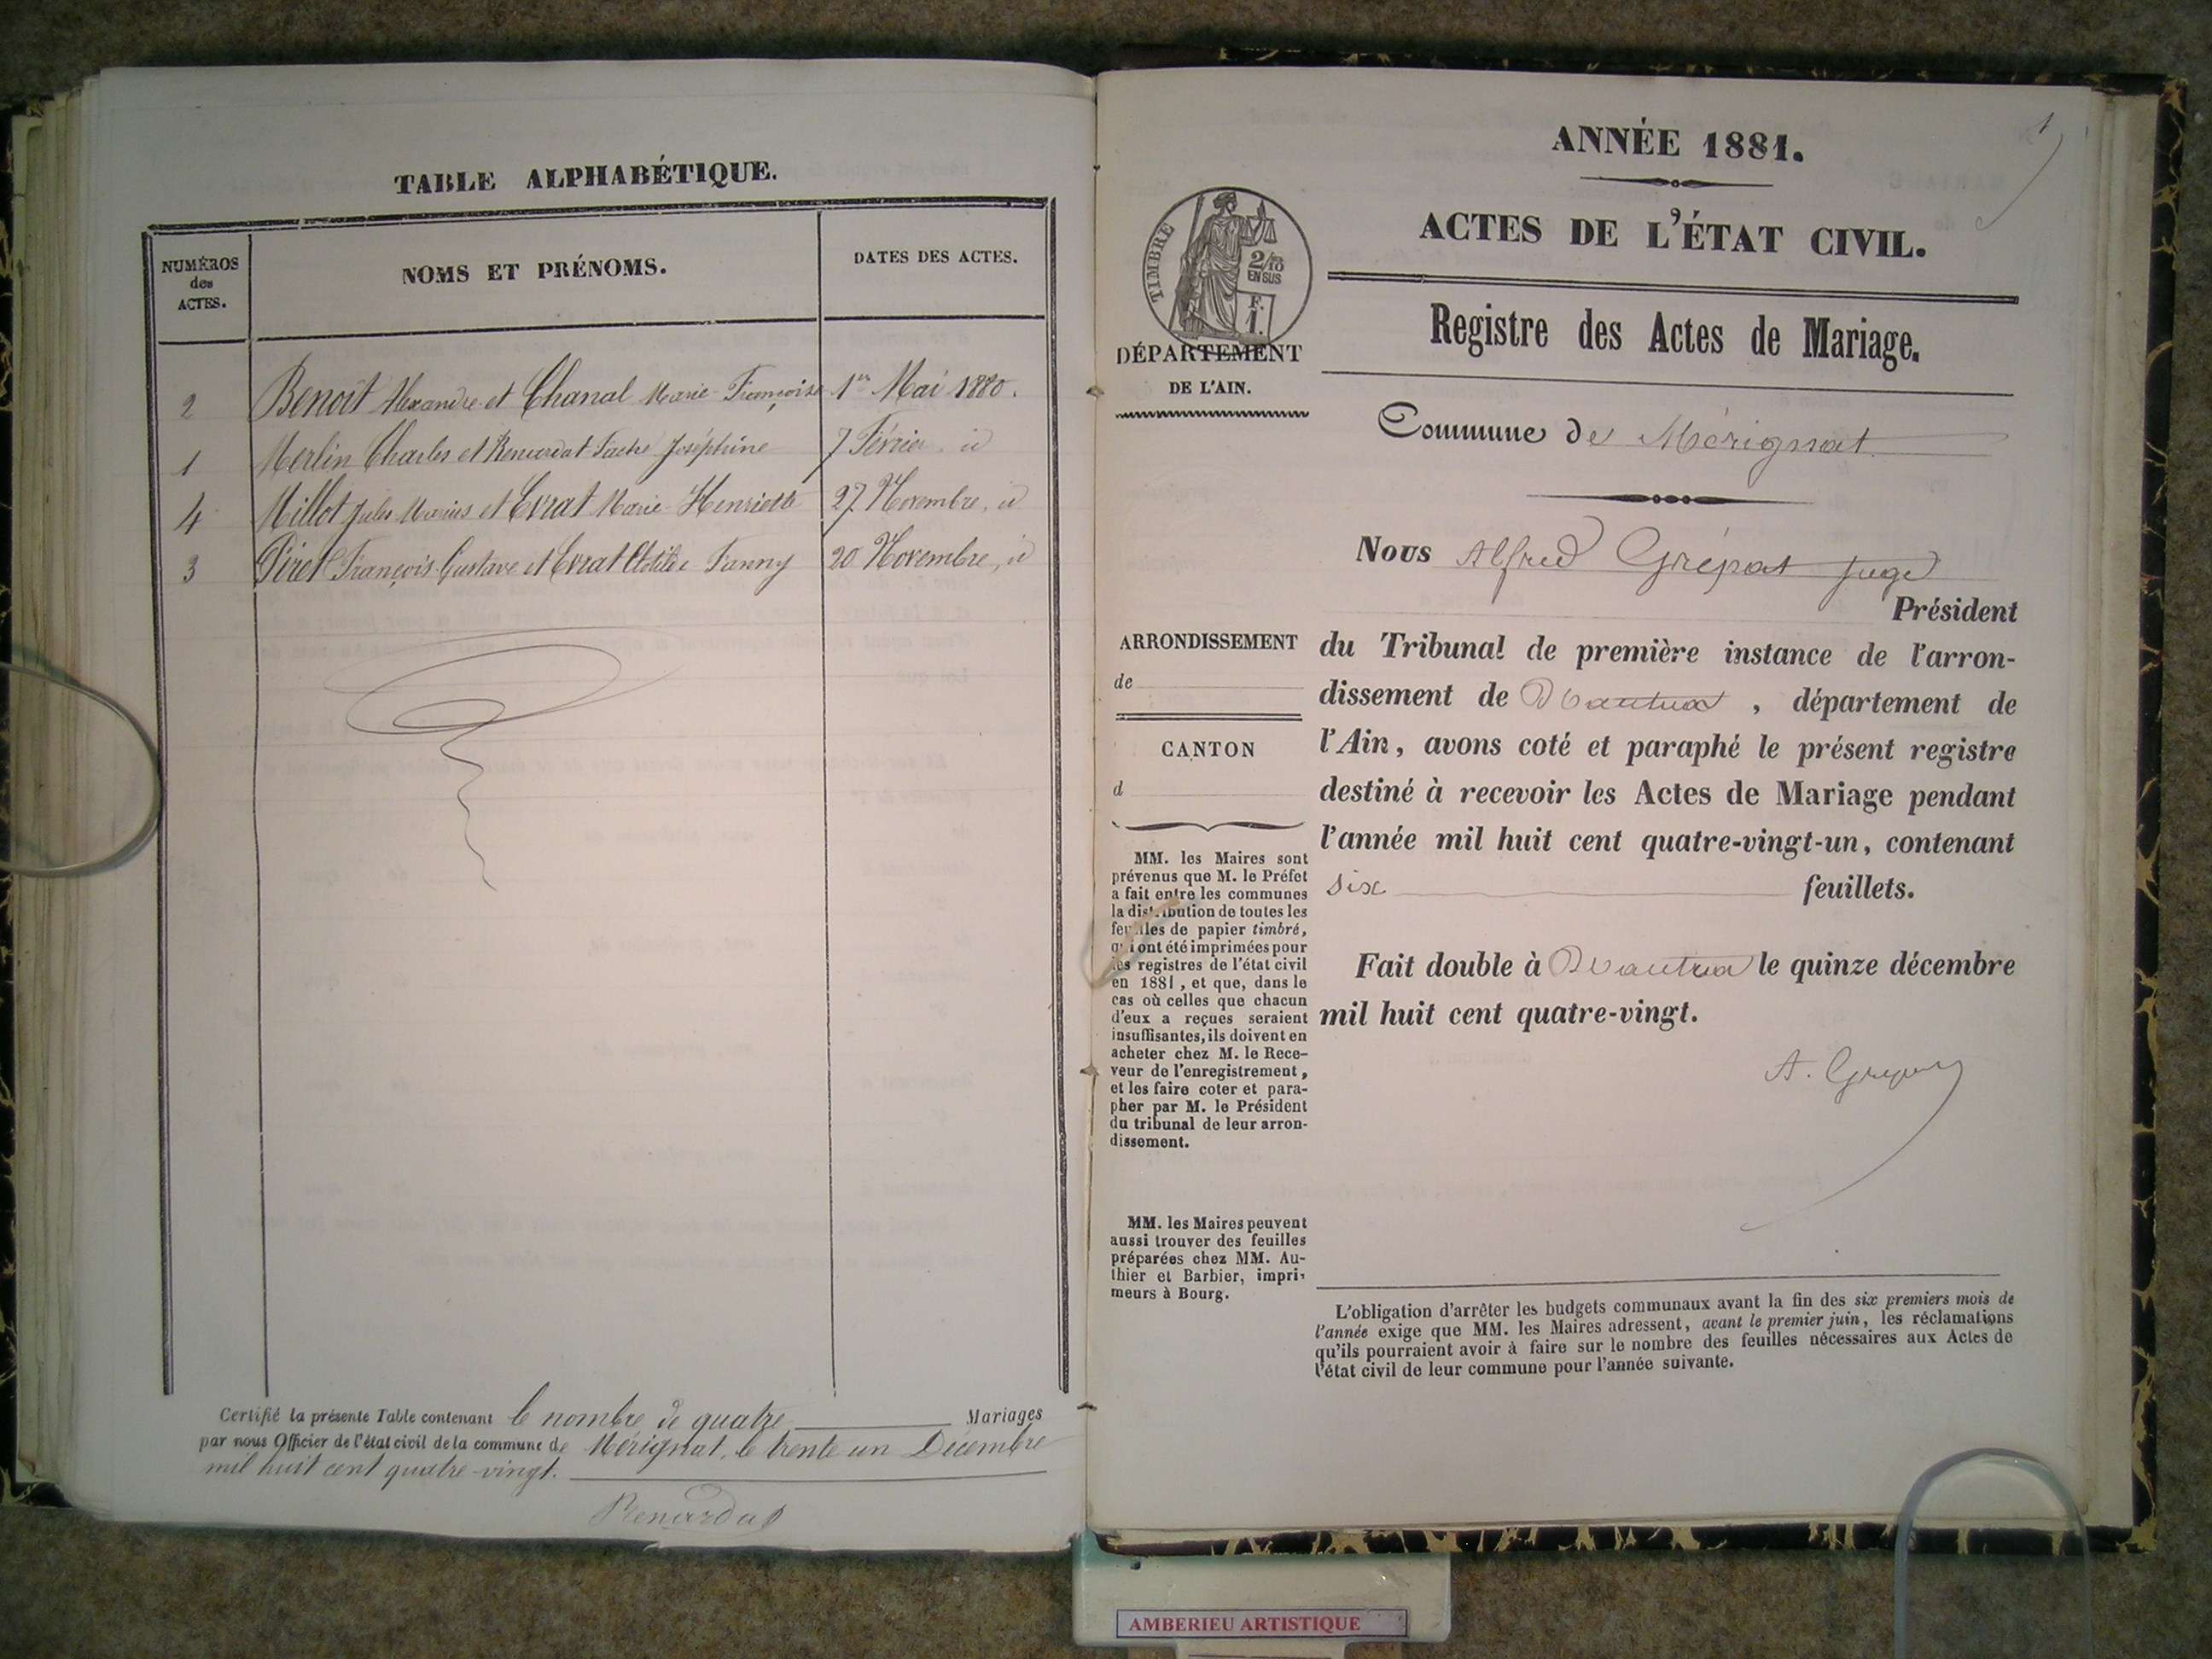 TABLE ALPHABÉTIQUE.
NUMÉROS
des
ACTES.
NOMS ET PRÉNOMS.
DATES DES ACTES.
2 Benoit Alexandre et Chanal Marie Françoise 1er Mai 1880.
1 Merlin Charles et Renardat Fache Joséphine 7 Février id
4 Millot Jules Marius et Evrat Marie Henriette 27 Novembre, id
3 Piret François Gustave et Evrat Clotilde Fanny 20 Novembre, id
Certifié la présente Table contenant le nombre de quatre Mariages
par nous Officier de l'état civil de la commune de Mérignat, le trente un Décembre
mil huit cent quatre-vingt.
Renardat
1
ANNÉE 1881.
ACTES DE L'ÉTAT CIVIL.
TIMBRE
2/10
EN SUS
F.
1.
DÉPARTEMENT
DE L'AIN.
Registre des Actes de Mariage.
Commune de Mérignat
Nous Alfred Grépat Juge
Président
du Tribunal de première instance de l'arron-
dissement de Nantua, département de
l'Ain, avons coté et paraphé le présent registre
destiné à recevoir les Actes de Mariage pendant
l'année mil huit cent quatre-vingt-un, contenant
six feuillets.
Fait double à Nantua le quinze décembre
mil huit cent quatre-vingt.
ARRONDISSEMENT
de
CANTON
d
MM. les Maires sont
prévenus que M. le Préfet
a fait entre les communes
la distribution de toutes les
feuilles de papier timbré,
qui ont été imprimées pour
les registres de l'état civil
en 1881, et que, dans le
cas où celles que chacun
d'eux a reçues seraient
insuffisantes, ils doivent en
acheter chez M. le Rece-
veur de l'enregistrement,
et les faire coter et para-
pher par M. le Président
du tribunal de leur arron-
dissement.
MM. les Maires peuvent
aussi trouver des feuilles
préparées chez MM. Au-
thier et Barbier, impri-
meurs à Bourg.
L'obligation d'arrêter les budgets communaux avant la fin des six premiers mois de
l'année exige que MM. les Maires adressent, avant le premier juin, les réclamations
qu'ils pourraient avoir à faire sur le nombre des feuilles nécessaires aux Actes de
l'état civil de leur commune pour l'année suivante.
AMBERIEU ARTISTIQUE